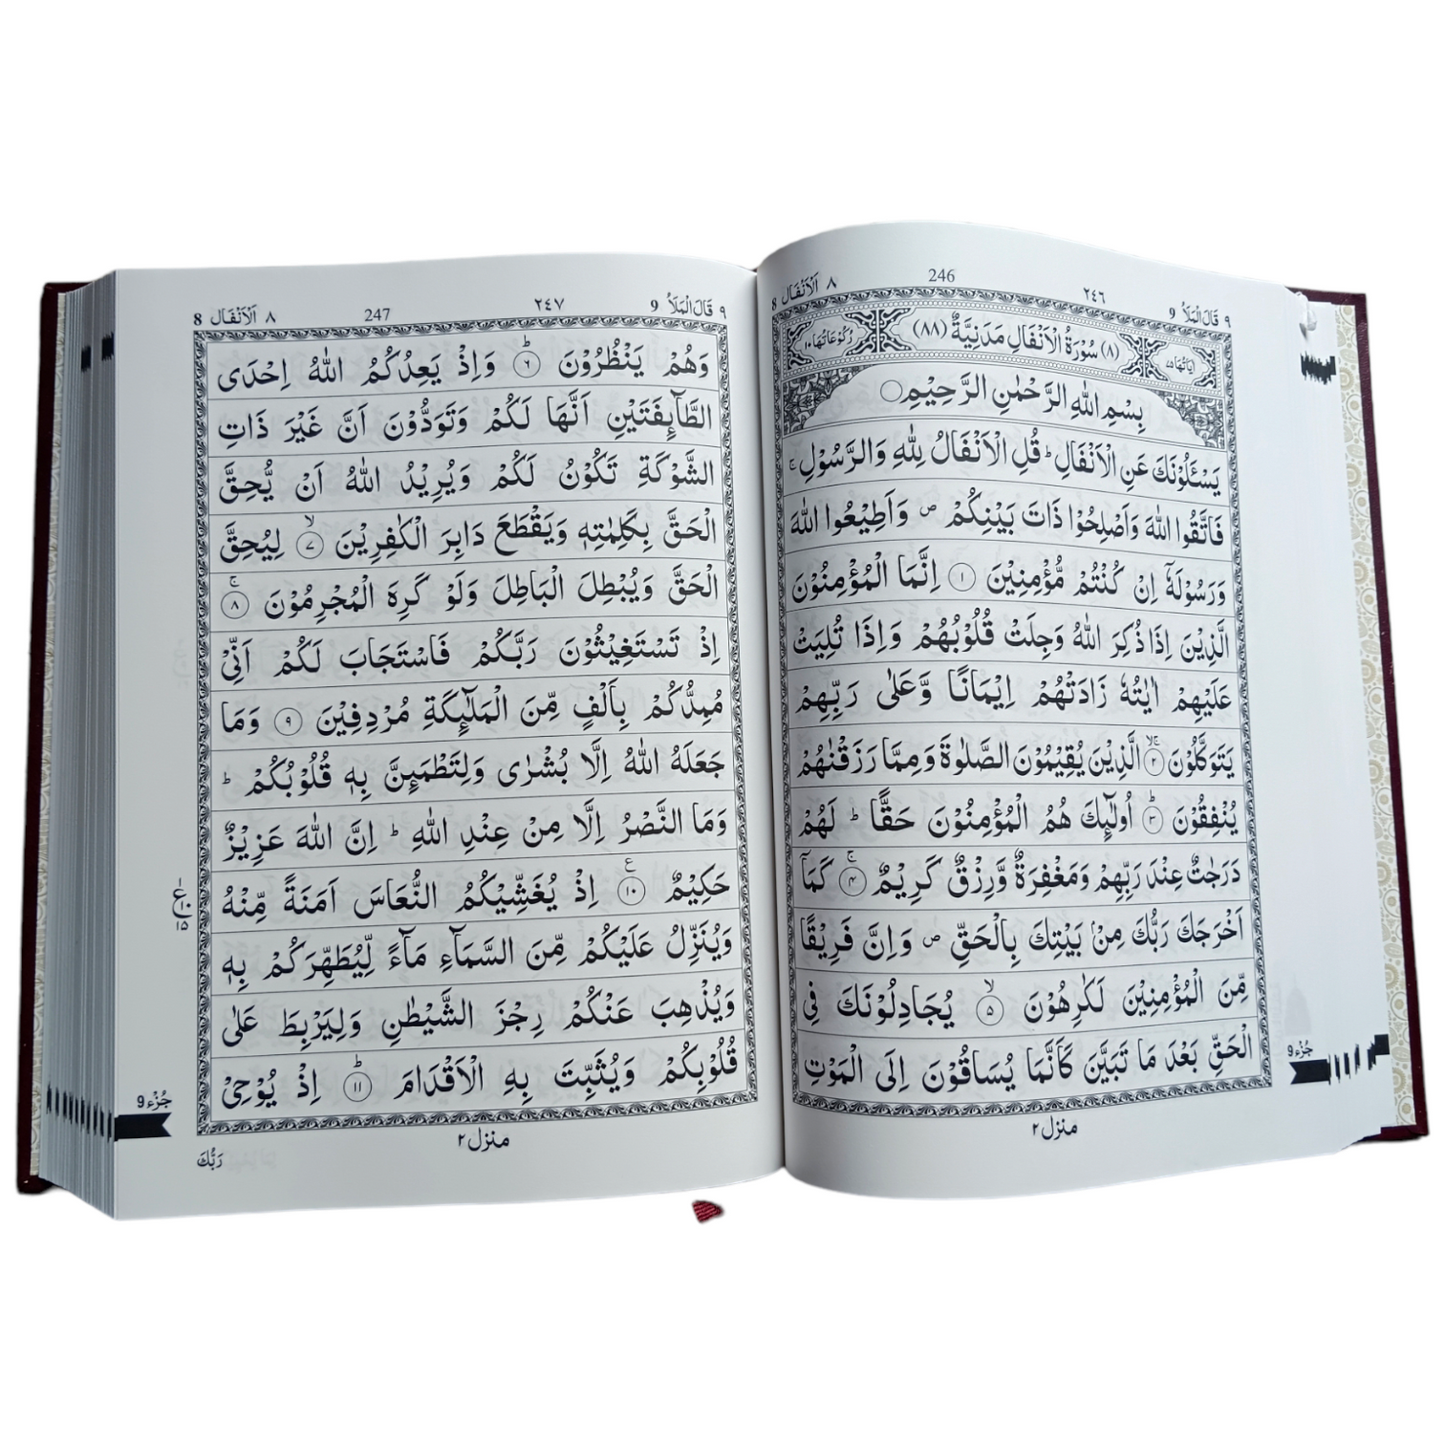 ٩ قَالَ الْمَلَاُ 9
٢٤٦
246
٨ اَلْاَنْفَال 8
اٰيَاتُهَا ٧٥
(٨) سُوْرَةُ الْاَنْفَالِ مَدَنِيَّةٌ (٨٨)
رُكُوْعَاتُهَا ١٠
بِسْمِ اللّٰهِ الرَّحْمٰنِ الرَّحِيْمِ
يَسْـَٔلُوْنَكَ عَنِ الْاَنْفَالِ ؕ قُلِ الْاَنْفَالُ لِلّٰهِ وَالرَّسُوْلِ ۚ
فَاتَّقُوا اللّٰهَ وَاَصْلِحُوْا ذَاتَ بَيْنِكُمْ ۪ وَاَطِيْعُوا اللّٰهَ
وَرَسُوْلَهٗۤ اِنْ كُنْتُمْ مُّؤْمِنِيْنَ ١ اِنَّمَا الْمُؤْمِنُوْنَ
الَّذِيْنَ اِذَا ذُكِرَ اللّٰهُ وَجِلَتْ قُلُوْبُهُمْ وَاِذَا تُلِيَتْ
عَلَيْهِمْ اٰيٰتُهٗ زَادَتْهُمْ اِيْمَانًا وَّعَلٰى رَبِّهِمْ
يَتَوَكَّلُوْنَ ٢ الَّذِيْنَ يُقِيْمُوْنَ الصَّلٰوةَ وَمِمَّا رَزَقْنٰهُمْ
يُنْفِقُوْنَ ٣ؕ اُولٰٓئِكَ هُمُ الْمُؤْمِنُوْنَ حَقًّا ؕ لَهُمْ
دَرَجٰتٌ عِنْدَ رَبِّهِمْ وَمَغْفِرَةٌ وَّرِزْقٌ كَرِيْمٌ ٤ۚ كَمَاۤ
اَخْرَجَكَ رَبُّكَ مِنْۢ بَيْتِكَ بِالْحَقِّ ۪ وَاِنَّ فَرِيْقًا
مِّنَ الْمُؤْمِنِيْنَ لَكٰرِهُوْنَ ٥ۙ يُجَادِلُوْنَكَ فِى
الْحَقِّ بَعْدَ مَا تَبَيَّنَ كَاَنَّمَا يُسَاقُوْنَ اِلَى الْمَوْتِ
جُزْء 9
منزل ٢
٩ قَالَ الْمَلَاُ 9
٢٤٧
247
٨ اَلْاَنْفَال 8
وَهُمْ يَنْظُرُوْنَ ٦ؕ وَاِذْ يَعِدُكُمُ اللّٰهُ اِحْدَى
الطَّآئِفَتَيْنِ اَنَّهَا لَكُمْ وَتَوَدُّوْنَ اَنَّ غَيْرَ ذَاتِ
الشَّوْكَةِ تَكُوْنُ لَكُمْ وَيُرِيْدُ اللّٰهُ اَنْ يُّحِقَّ
الْحَقَّ بِكَلِمٰتِهٖ وَيَقْطَعَ دَابِرَ الْكٰفِرِيْنَ ٧ۙ لِيُحِقَّ
الْحَقَّ وَيُبْطِلَ الْبَاطِلَ وَلَوْ كَرِهَ الْمُجْرِمُوْنَ ٨ۚ
اِذْ تَسْتَغِيْثُوْنَ رَبَّكُمْ فَاسْتَجَابَ لَكُمْ اَنِّىْ
مُمِدُّكُمْ بِاَلْفٍ مِّنَ الْمَلٰٓئِكَةِ مُرْدِفِيْنَ ٩ وَمَا
جَعَلَهُ اللّٰهُ اِلَّا بُشْرٰى وَلِتَطْمَئِنَّ بِهٖ قُلُوْبُكُمْ ؕ
وَمَا النَّصْرُ اِلَّا مِنْ عِنْدِ اللّٰهِ ؕ اِنَّ اللّٰهَ عَزِيْزٌ
حَكِيْمٌ ١٠ اِذْ يُغَشِّيْكُمُ النُّعَاسَ اَمَنَةً مِّنْهُ
وَيُنَزِّلُ عَلَيْكُمْ مِّنَ السَّمَآءِ مَآءً لِّيُطَهِّرَكُمْ بِهٖ
وَيُذْهِبَ عَنْكُمْ رِجْزَ الشَّيْطٰنِ وَلِيَرْبِطَ عَلٰى
قُلُوْبِكُمْ وَيُثَبِّتَ بِهِ الْاَقْدَامَ ١١ؕ اِذْ يُوْحِىْ
جُزْء 9
منزل ٢
رَبُّكَ